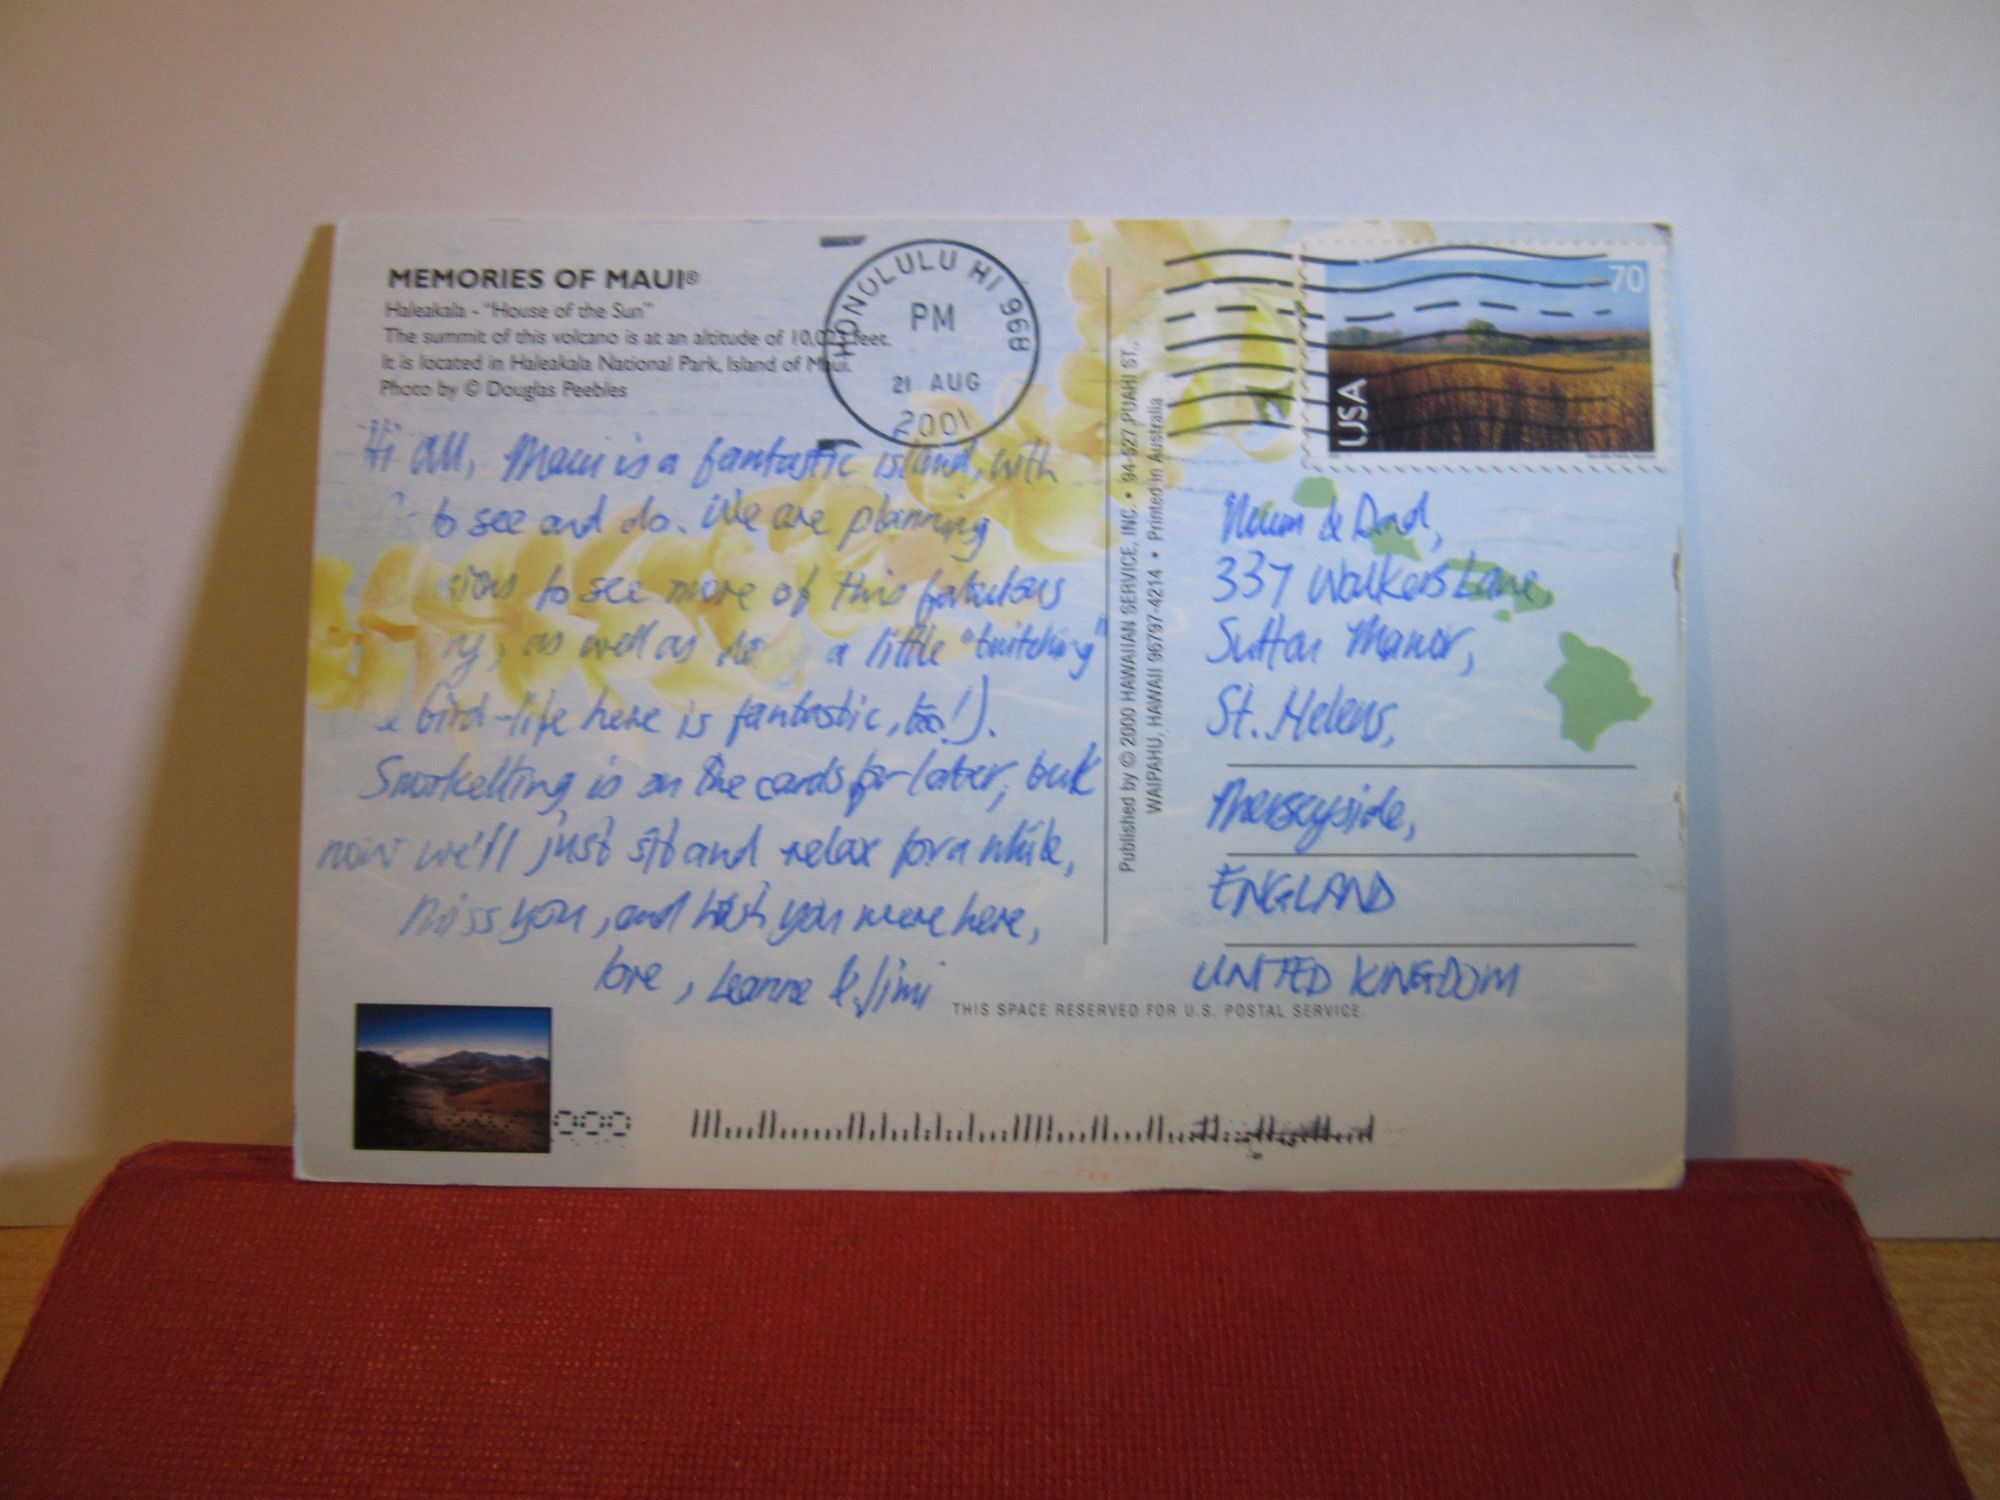 MEMORIES OF MAUI®
Haleakala - "House of the Sun"
The summit of this volcano is at an altitude of 10,023 feet.
It is located in Haleakala National Park, Island of Maui.
Photo by © Douglas Peebles
HONOLULU HI 968
PM
21 AUG
2001
Hi All, Maui is a fantastic island, with
to see and do. We are planning
to see more of this fabulous
as well as a little "twitching"
bird-life here is fantastic, too!).
Snorkelling is on the cards for later, but
now we'll just sit and relax for a while,
Miss you, and wish you were here,
love, Leanne & Jimi
Published by © 2000 HAWAIIAN SERVICE, INC. • 94-527 PUAHI ST.,
WAIPAHU, HAWAII 96797-4214 • Printed in Australia
70
USA
Mum & Dad,
337 Walkers Lane,
Sutton Manor,
St. Helens,
Merseyside,
ENGLAND
UNITED KINGDOM
THIS SPACE RESERVED FOR U.S. POSTAL SERVICE.
000